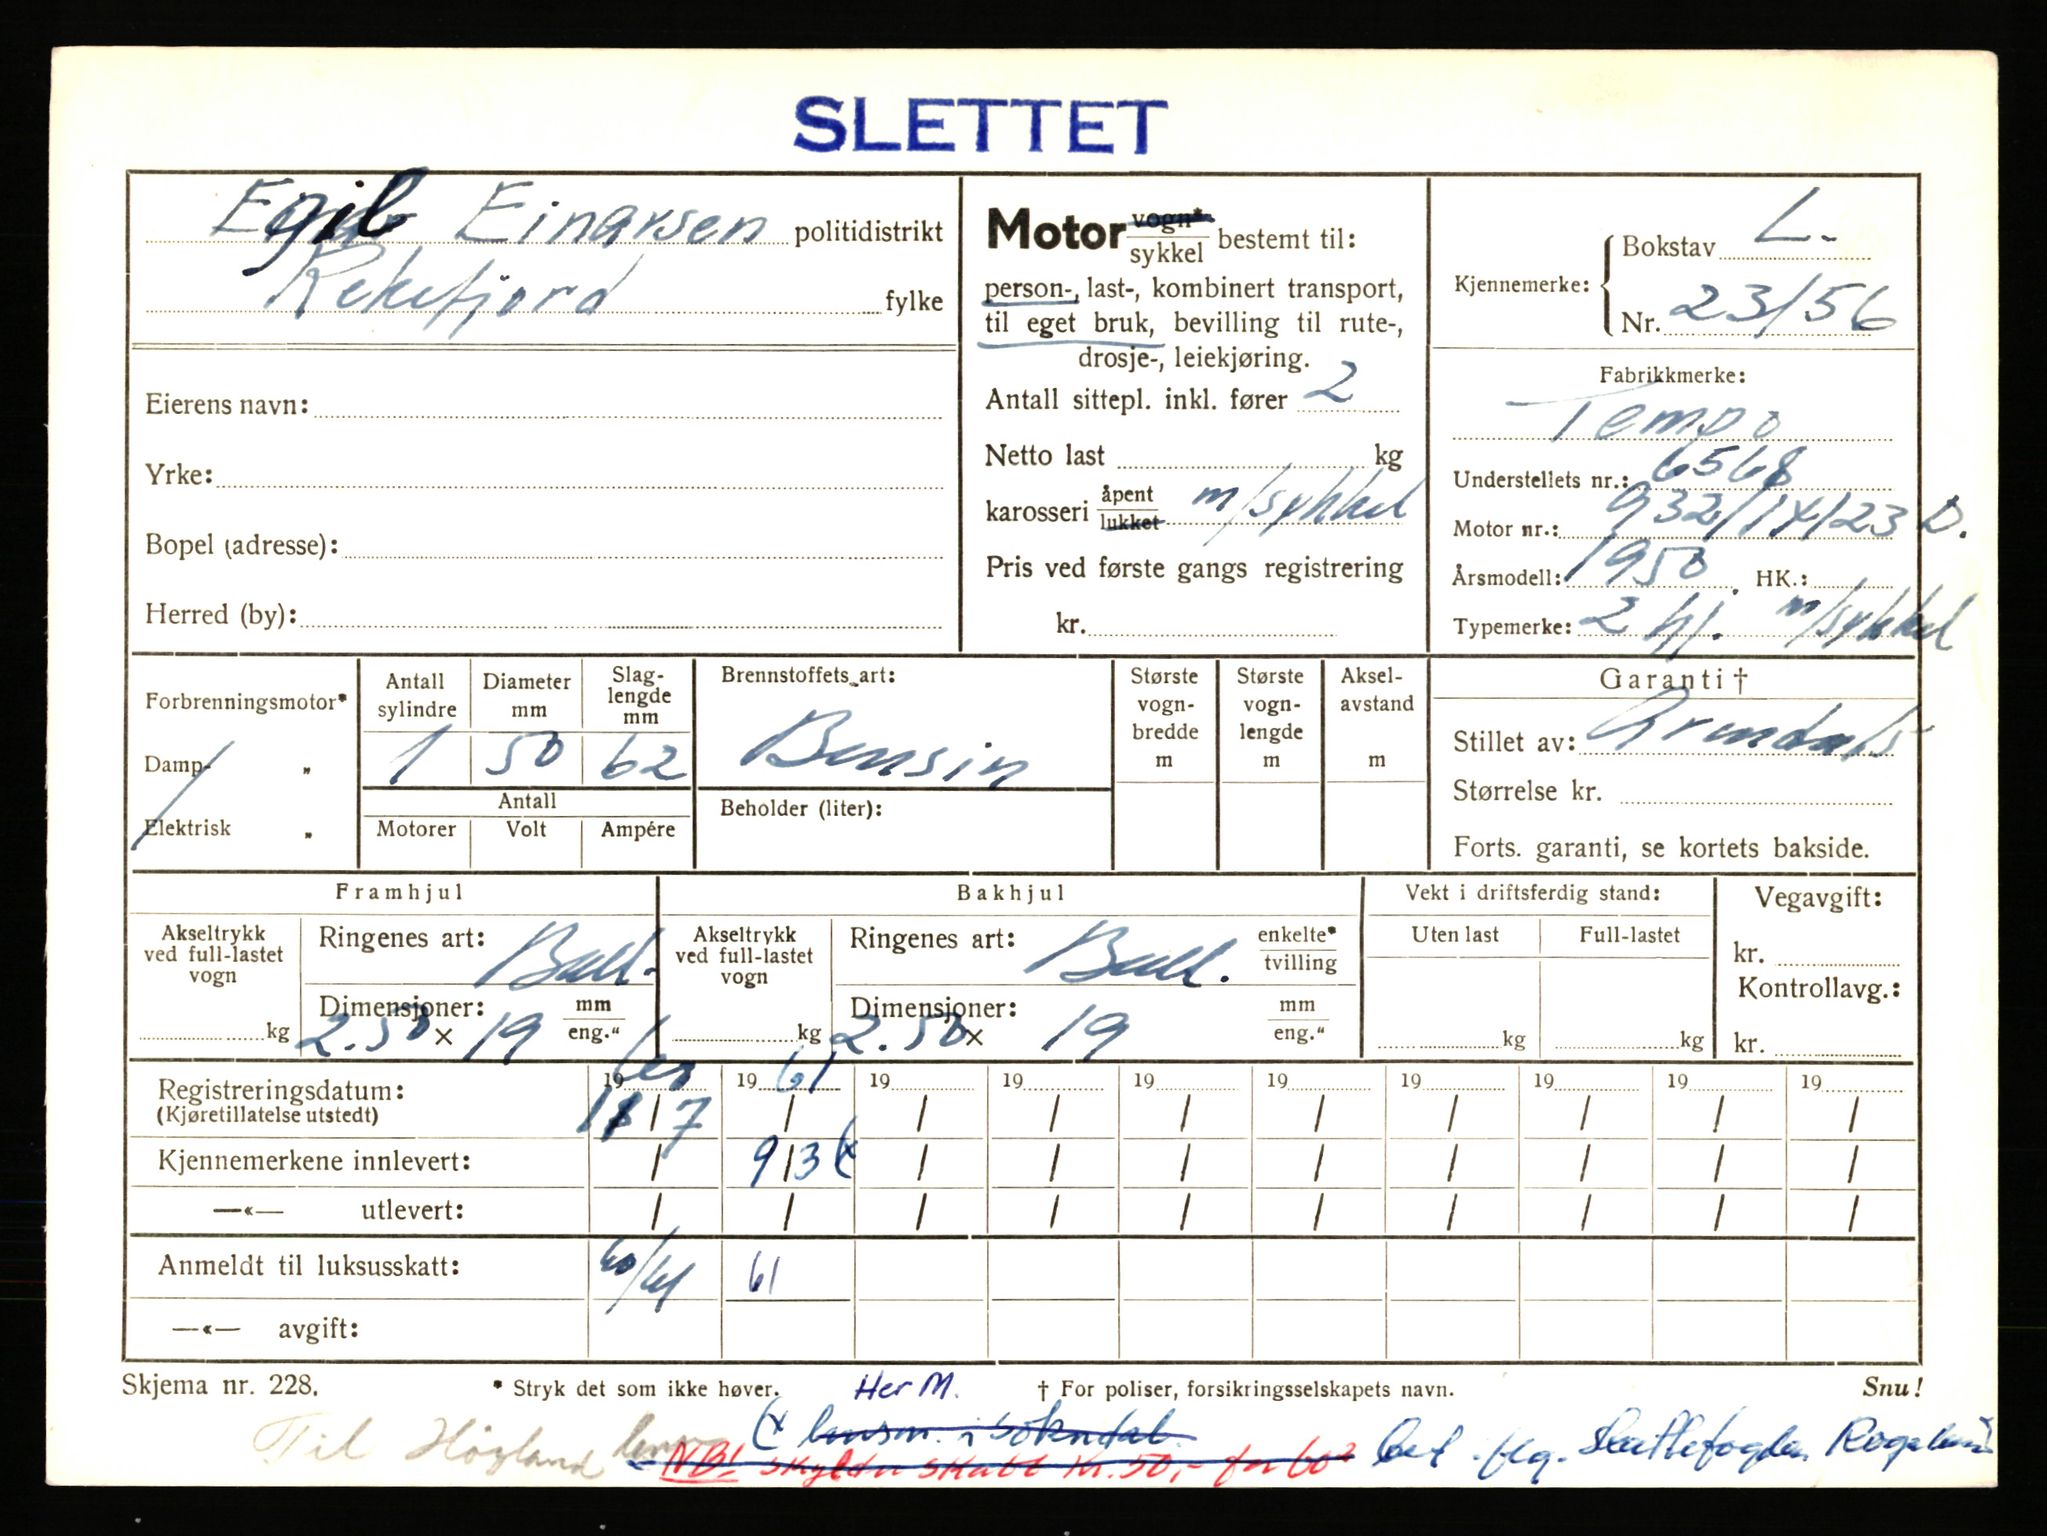 SLETTET
Egil Einarsen politidistrikt
Rekefjord fylke
Eierens navn:
Yrke:
Bopel (adresse):
Herred (by):
Motor vogn* / sykkel bestemt til:
person-, last-, kombinert transport,
til eget bruk, bevilling til rute-,
drosje-, leiekjøring.
Antall sittepl. inkl. fører 2
Netto last kg
karosseri åpent / lukket m/sykkel
Pris ved første gangs registrering
kr.
Kjennemerke: Bokstav L.
Nr. 23156
Fabrikkmerke:
Tempo
Understellets nr.: 6568
Motor nr.: 932/14123 D.
Årsmodell: 1950 HK.:
Typemerke: 2 hj. m/sykkel
Forbrenningsmotor*
Damp- „
Elektrisk „
Antall sylindre 1
Diameter mm 50
Slag-lengde mm 62
Antall
Motorer Volt Ampére
Brennstoffets art:
Bensin
Beholder (liter):
Største vogn-bredde m
Største vogn-lengde m
Aksel-avstand m
Garanti †
Stillet av: Grundals
Størrelse kr.
Forts. garanti, se kortets bakside.
Framhjul
Akseltrykk ved full-lastet vogn kg
Ringenes art: Ball.
Dimensjoner: mm / eng."
2.50 x 19
Bakhjul
Akseltrykk ved full-lastet vogn kg
Ringenes art: Ball. enkelte* / tvilling
Dimensjoner: mm / eng."
2.50 x 19
Vekt i driftsferdig stand:
Uten last Full-lastet
kg kg
Vegavgift:
kr.
Kontrollavg.:
kr.
Registreringsdatum: 1960 1961 19 19 19 19 19 19 19 19
(Kjøretillatelse utstedt) 18/7 / / / / / / / / /
Kjennemerkene innlevert: / 9/3 (x / / / / / / / /
—«— utlevert: / / / / / / / / / /
Anmeldt til luksusskatt: 60/61 61
—«— avgift:
Skjema nr. 228. * Stryk det som ikke høver. Her M. † For poliser, forsikringsselskapets navn. Snu!
Til Høgland (x lensm. i Sokndal.
NB! skylder skatt kr. 50,- for 60² bet. flg. skattefogden Rogaland